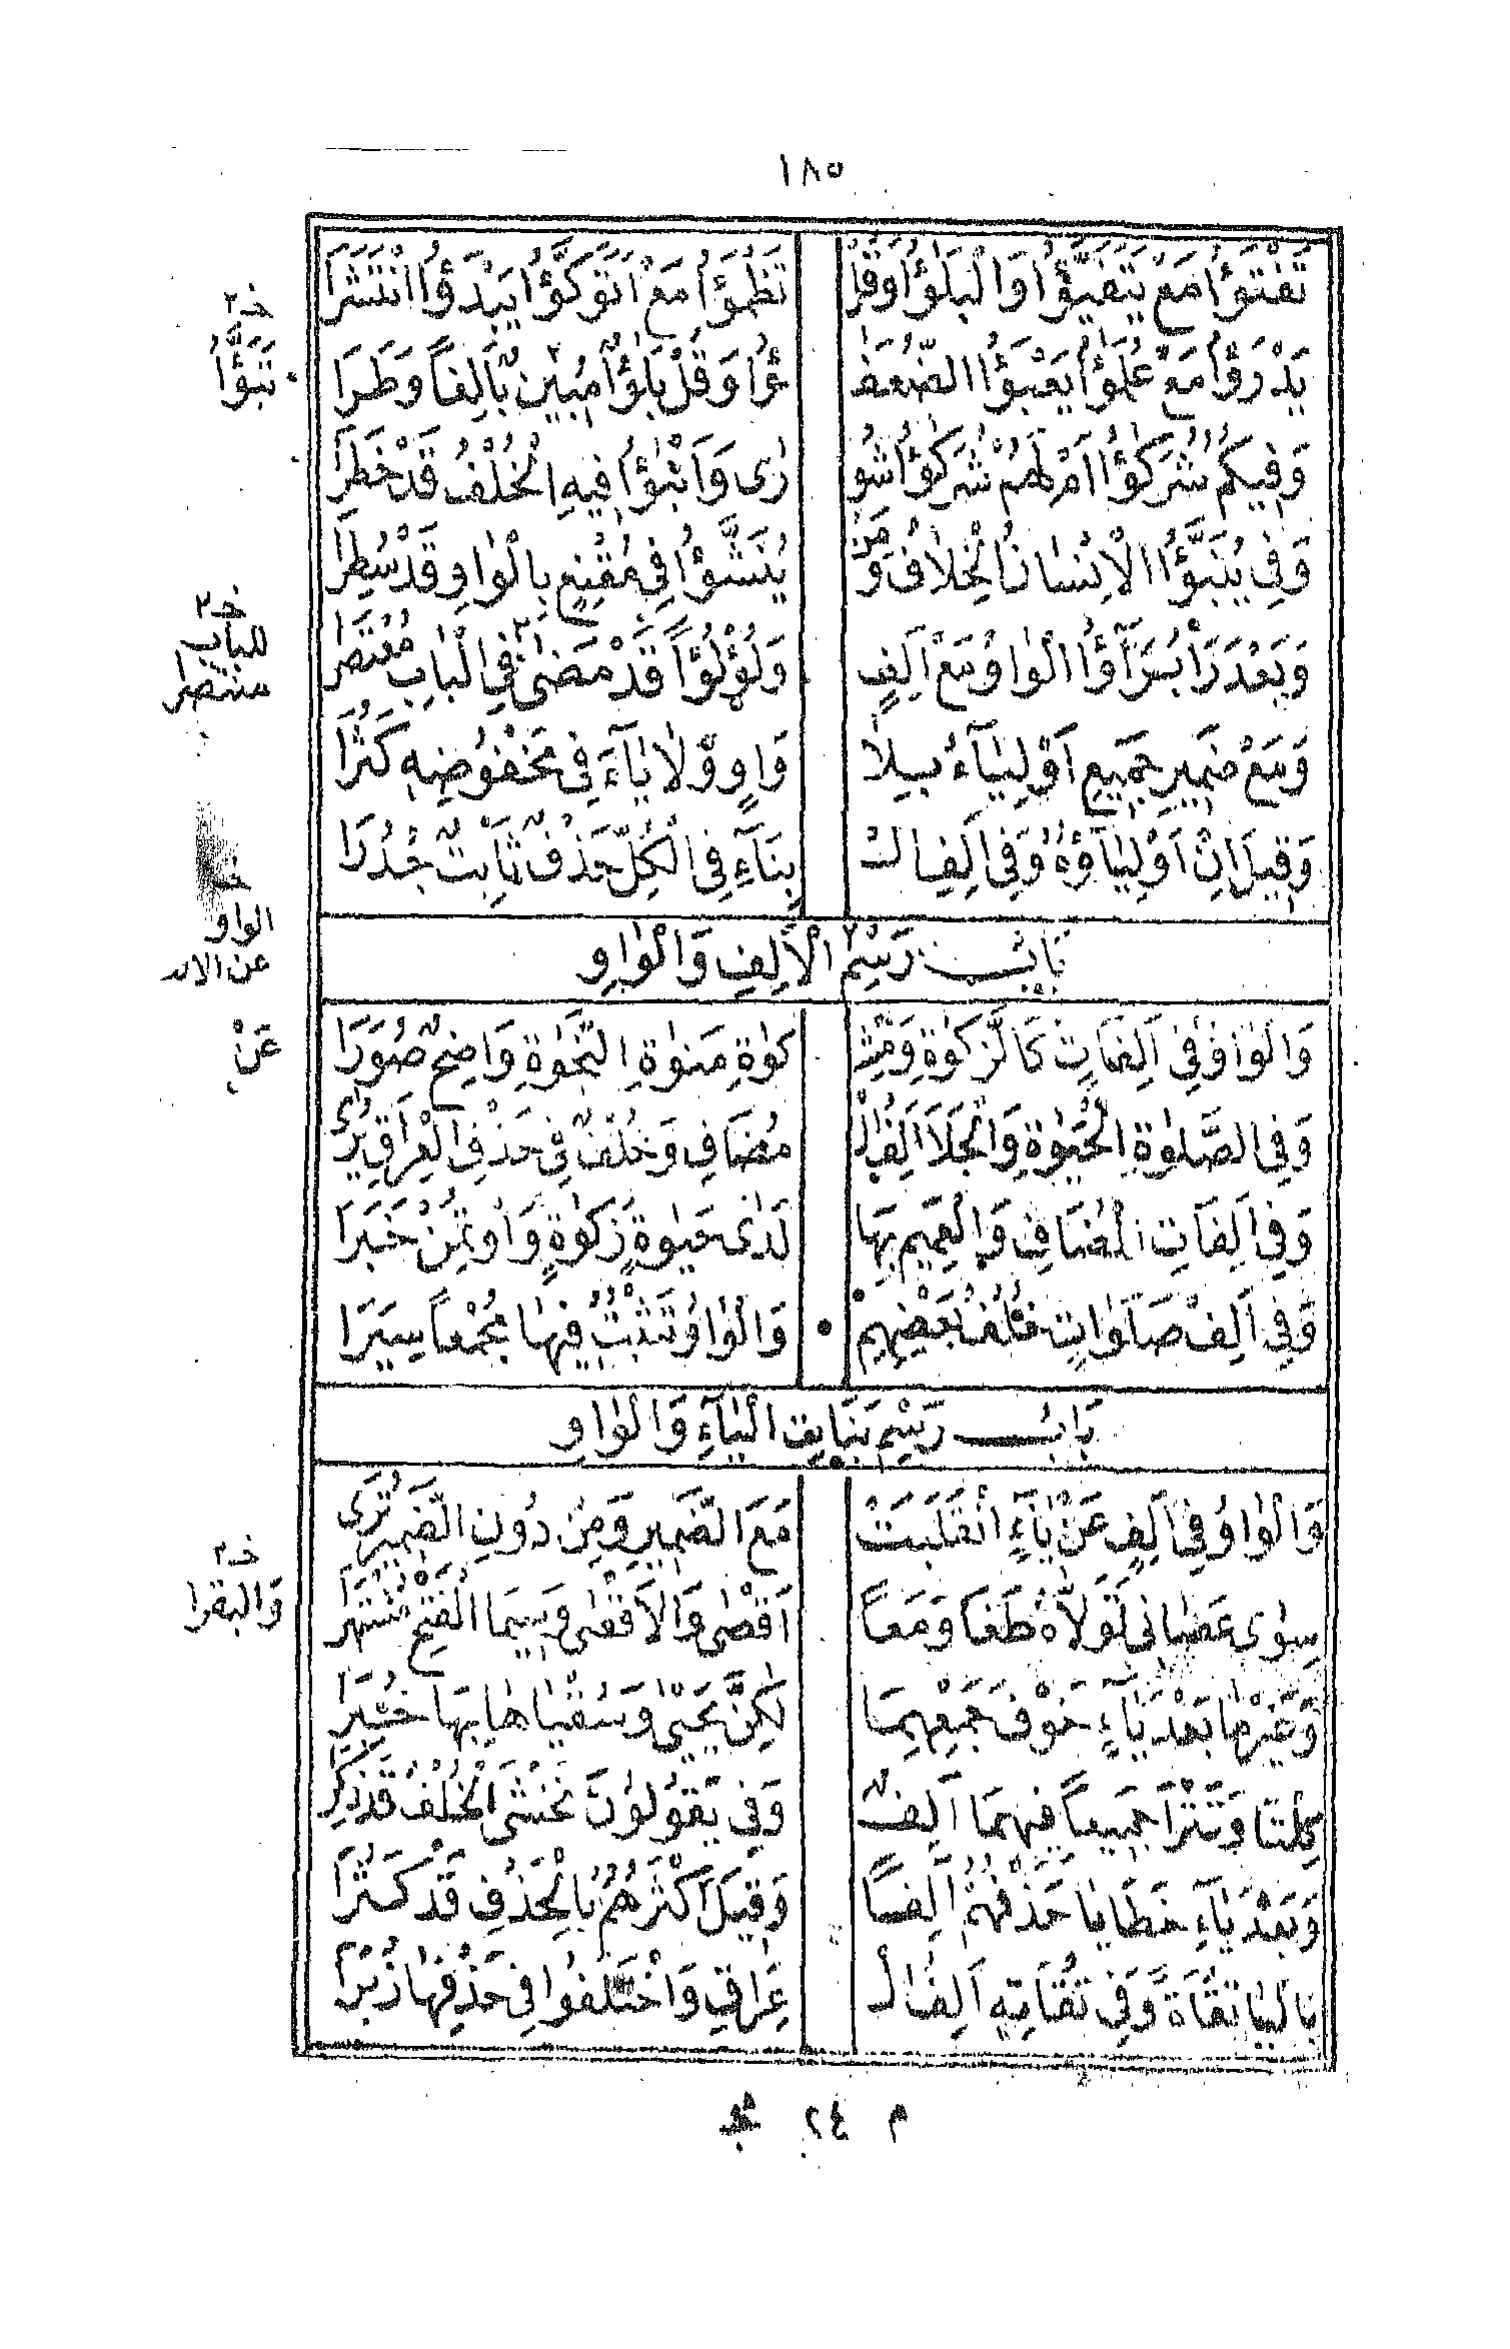 ١٨٥
تَفْتَؤُا مَعْ يَتَفَيَّؤُا وَالْبَلٰؤُا وَقُلْ تَظْمَؤُا مَعْ اَتَوَكَّؤُا يَبْدَؤُا انْتَشَرَا
يَدْرَؤُا مَعْ عُلَمٰؤُا يَعْبَؤُا الضُّعَفٰ ؤُا وَقُلْ بَلٰؤٌا مُبِيْنٌ بَالِغًا وَطَرَا
وَفِيكُمْ شُرَكٰؤُا اَمْ لَهُمْ شُرَكٰؤُا شُو رٰى وَاَنْبٰؤُا فِيهِ الْخُلْفُ قَدْ خَطَرَا
وَفِي يُنَبَّؤُا الْاِنْسَانُ الْخِلَافُ وَمَنْ يُنَشَّؤُا فِي مُقْنِعٍ بِالْوَاوِ قَدْ سُطِرَا
وَبَعْدَ رَا بُرَآؤُا الْوَاوُ مَعْ اَلِفٍ وَلُؤْلُؤًا قَدْ مَضٰى فِي الْبَابِ مُعْتَصِرَا
وَمَعْ ضَمِيرِ جَمِيعٍ اَوْلِيَآءُ بِلَا وَاوٍ وَّلَا يَآءَ فِي مَخْفُوضِهِ كَثُرَا
وَقِيلَ اِنْ اَوْلِيَآؤُهُ وَفِي اَلِفِ الْـ بِنَآءِ فِي الْكُلِّ حَذْفٌ ثَابِتٌ جُدُرَا
بَابُ رَسْمِ الْاَلِفِ وَالْوَاوِ
وَالْوَاوُ فِي اَلِفَاتٍ كَالزَّكٰوةِ وَمِشْـ كٰوةٍ مَنٰوةِ النَّجٰوةِ وَاضِحٌ صُوَرَا
وَفِي الصَّلٰوةِ الْحَيٰوةِ وَانْجَلَا اَلِفُ الْـ مُضَافِ وَخُلْفٌ فِي حَذْفِ الْعِرَاقِ يُرٰى
وَفِي اَلِفَاتِ الْمُضَافِ وَالْعَمِيمِ بِهَا لَدٰى حَيٰوةٍ زَكٰوةٍ وَاوُ مَنْ خَبَرَا
وَفِي اَلِفْ صَلَوَاتٍ خُلْفُ بَعْضِهِمْ وَالْوَاوُ تَثْبُتُ فِيْهَا مُجْمَعًا سِيَرَا
بَابُ رَسْمِ بَنَاتِ الْيَآءِ وَالْوَاوِ
وَالْوَاوُ فِي اَلِفٍ عَنْ يَآءٍ انْقَلَبَتْ مَعَ الضَّمِيرِ وَمِنْ دُونِ الضَّمِيرِ تُرٰى
سِوٰى عَصَانِي تَوَلَّاهُ طَغَا وَمَعًا اَقْصٰى وَالْاَقْصٰى وَسِيمَا الْفَتْحِ مُشْتَهَرَا
وَغَيْرَ مَا بَعْدَ يَآءٍ خَوْفَ جَمْعِهِمَا لٰكِنَّ يَحْيٰى وَسُقْيَاهَا بِهَا حُبِّرَا
كِلْتَا وَتَتْرَا جَمِيعًا فِيهِمَا اَلِفٌ وَفِي يَقُولُونَ نَخْشَى الْخُلْفُ قَدْ ذُكِرَا
وَبَعْدَ يَآءِ خَطَايَا حَذْفُهُمْ اَلِفًا وَقِيلَ اَكْثَرُهُمْ بِالْحَذْفِ قَدْ كَثُرَا
بِالْيَا تُقَاةً وَّفِي تُقَاتِهِ اَلِفُ الْـ عِرَاقِ وَاخْتَلَفُوا فِي حَذْفِهَا زُبُرَا
خـ٢
تَبَوَّؤُا
خـ٢
للباب
منتصرا
خـ
الواو
عن الالف
عَنْ
خـ٢
وَالبقرا
م ٢٤